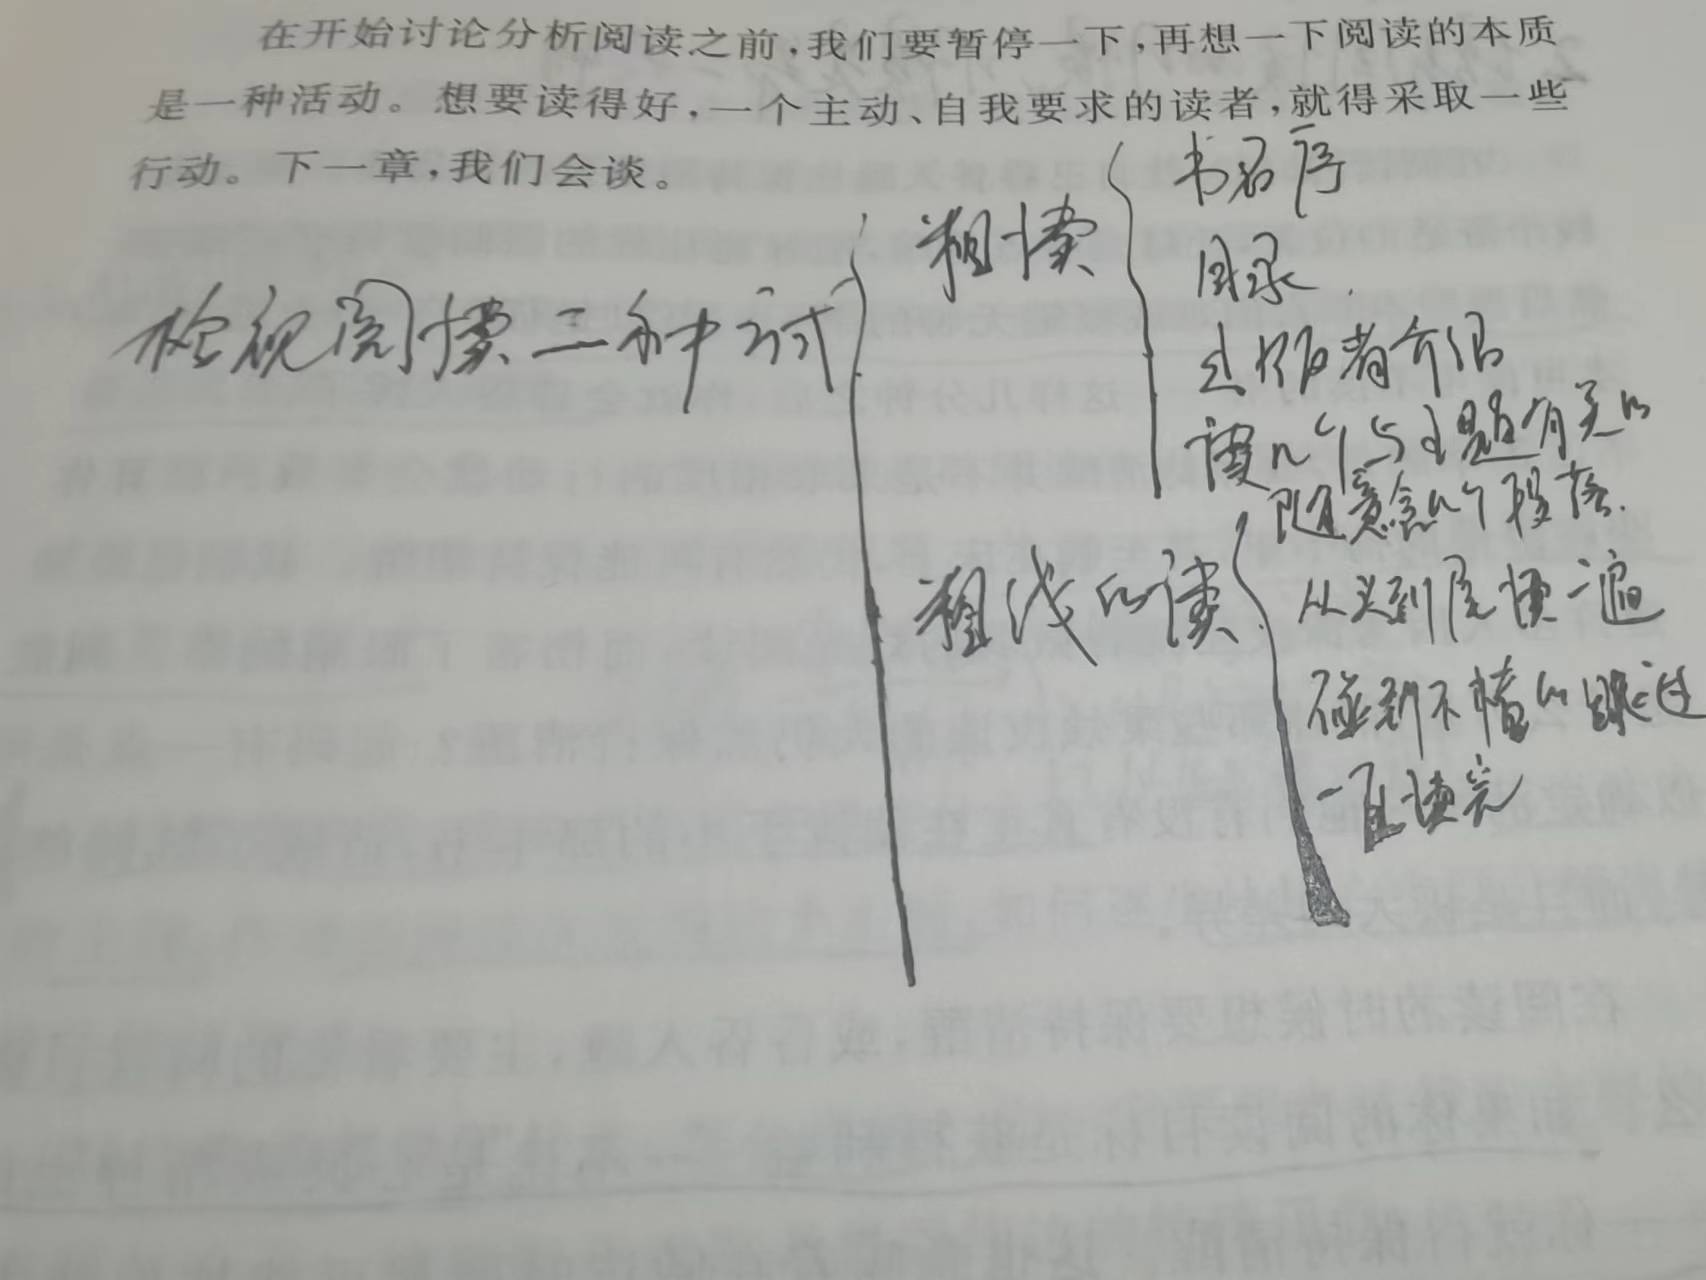 在开始讨论分析阅读之前，我们要暂停一下，再想一下阅读的本质
是一种活动。想要读得好，一个主动、自我要求的读者，就得采取一些
行动。下一章，我们会谈。
检视阅读二种
粗读
书名序
目录.
出版者介绍
读几个与主题有关的
随意念几个段落.
粗浅的读
从头到尾读一遍
碰到不懂的跳过
一直读完